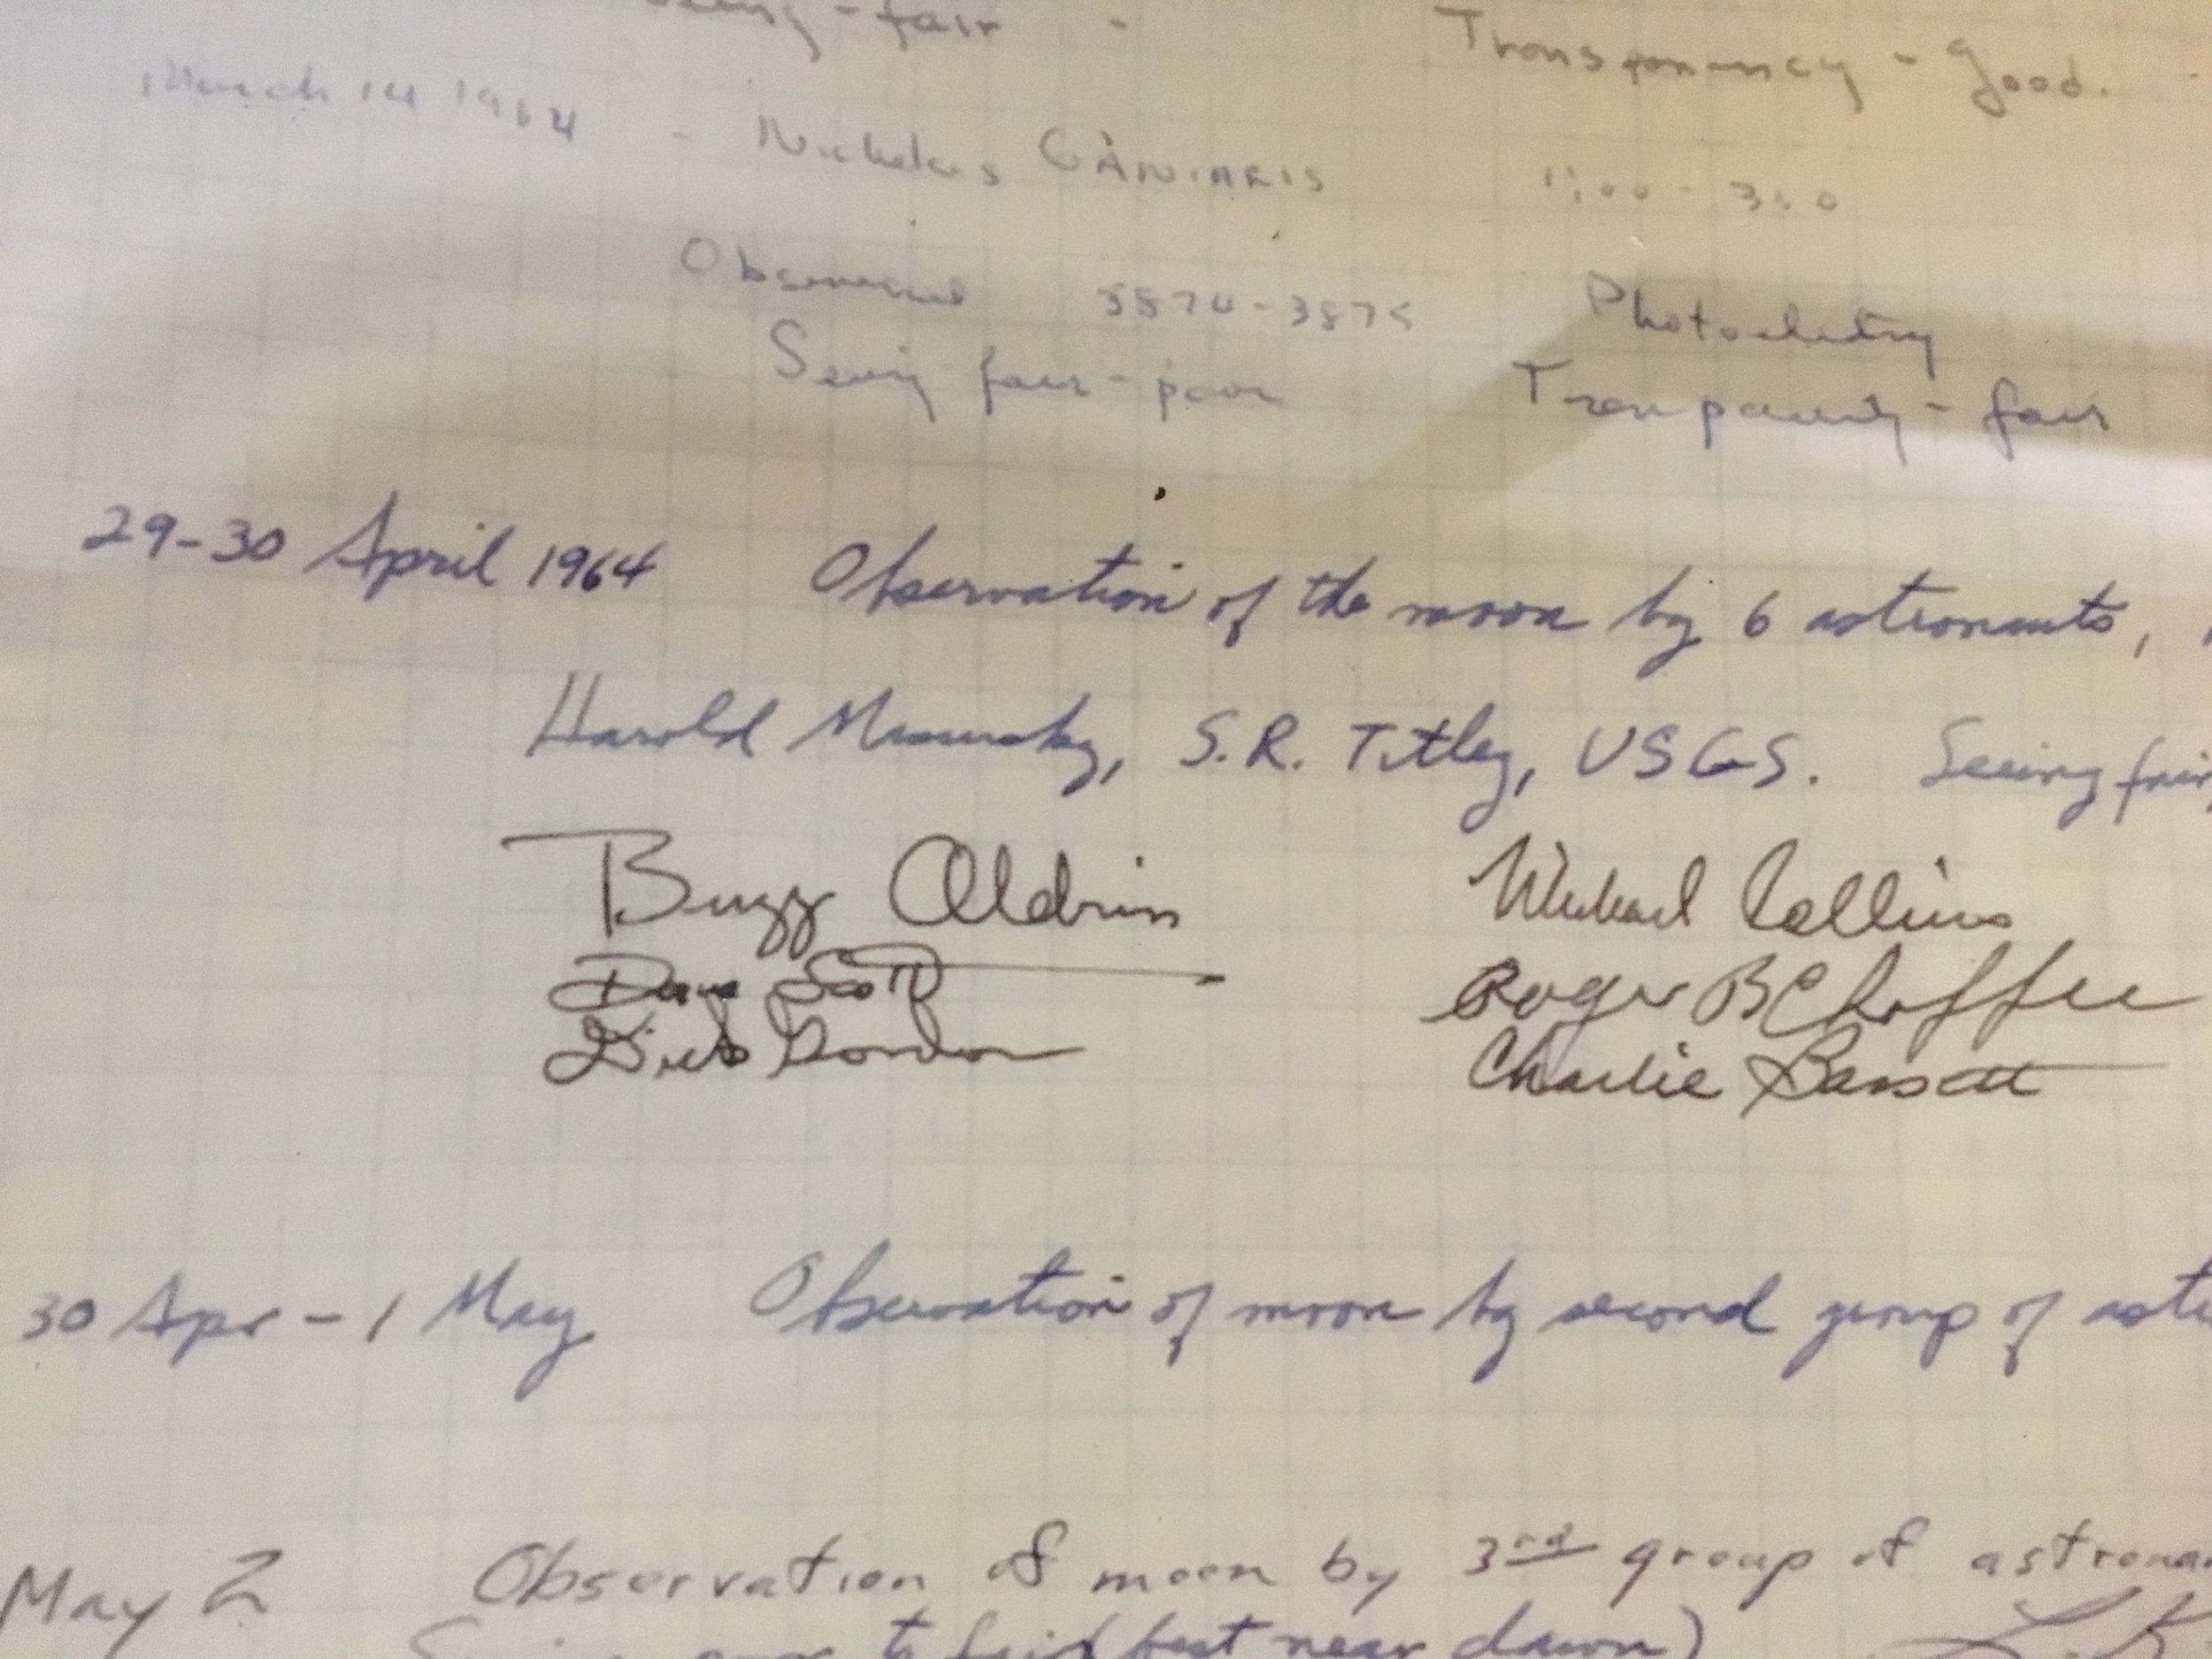 Seeing - fair - Transparency - good.
March 14 1964 - Nicholas GANIARIS 1:00 - 3:00
Observed 3874-3875
Seeing fair-poor Transparency - fair
29-30 April 1964 Observation of the moon by 6 astronauts,
Harold Masursky, S.R. Titley, USGS. Seeing fair,
Buzz Aldrin Michael Collins
Dave Scott Roger B Chaffee
Dick Gordon Charlie Bassett
30 Apr - 1 May Observation of moon by second group of
May 2 Observation of moon by 3rd group of
Seeing poor to fair (best near dawn)